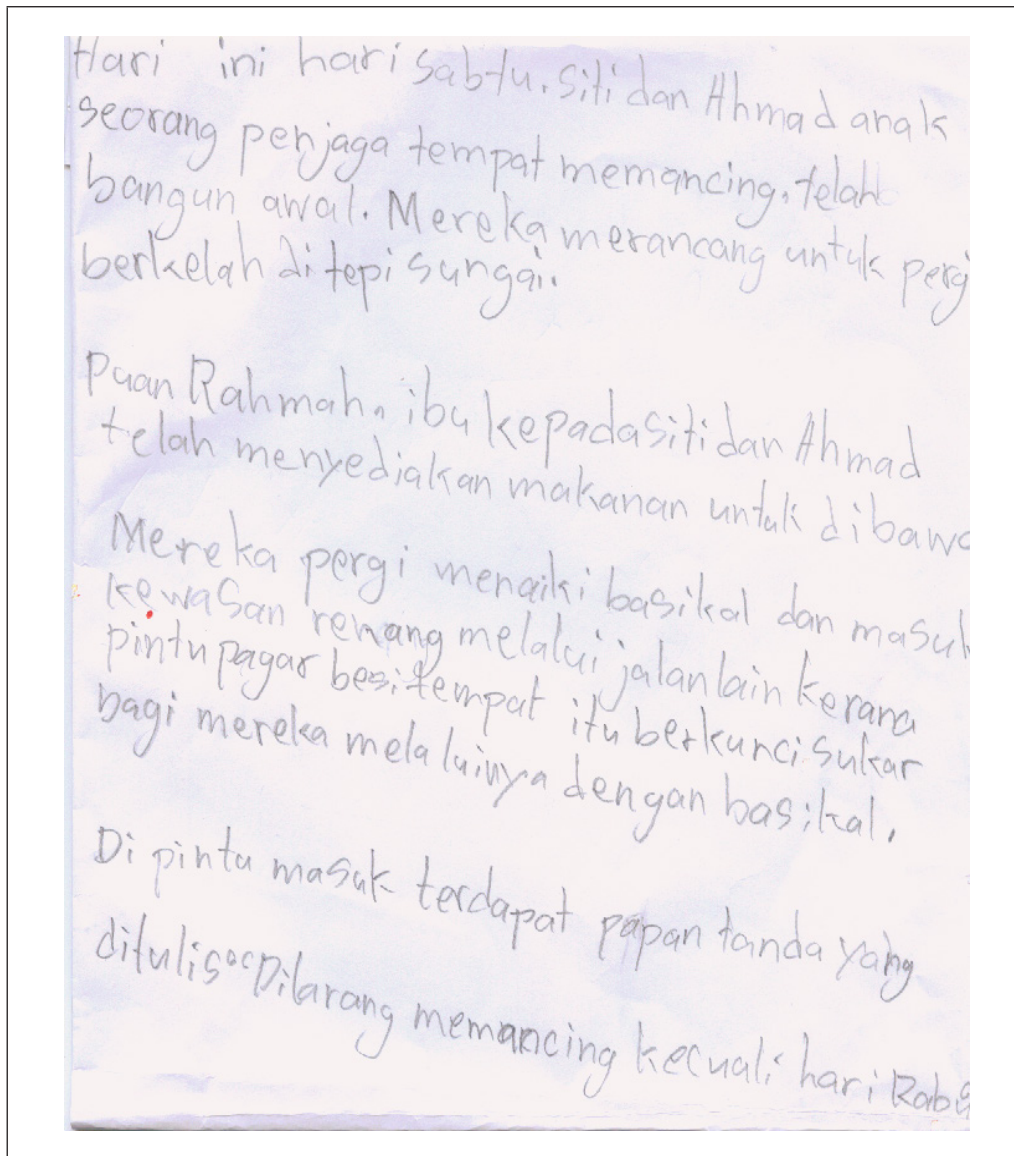 Hari ini hari sabtu. siti dan Ahmad anak
seorang penjaga tempat memancing. telah
bangun awal. Mereka merancang untuk pergi
berkelah di tepi sungai.
Puan Rahmah, ibu kepada siti dan Ahmad
telah menyediakan makanan untuk dibawa
Mereka pergi menaiki basikal dan masuk
kewasan renang melalui jalan lain kerana
pintu pagar besi tempat itu berkunci sukar
bagi mereka melaluinya dengan basikal.
Di pintu masuk terdapat papan tanda yang
ditulis "Dilarang memancing kecuali hari Rabu